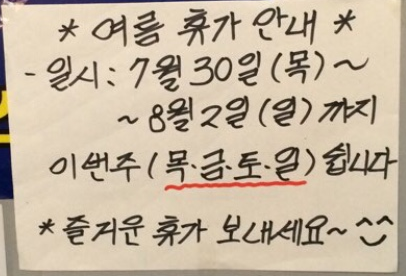 * 여름 휴가 안내 *
- 일시 : 7월 30일 (목) ~
~ 8월 2일 (일) 까지
이번주 (목·금·토·일) 쉽니다
* 즐거운 휴가 보내세요~ ^^